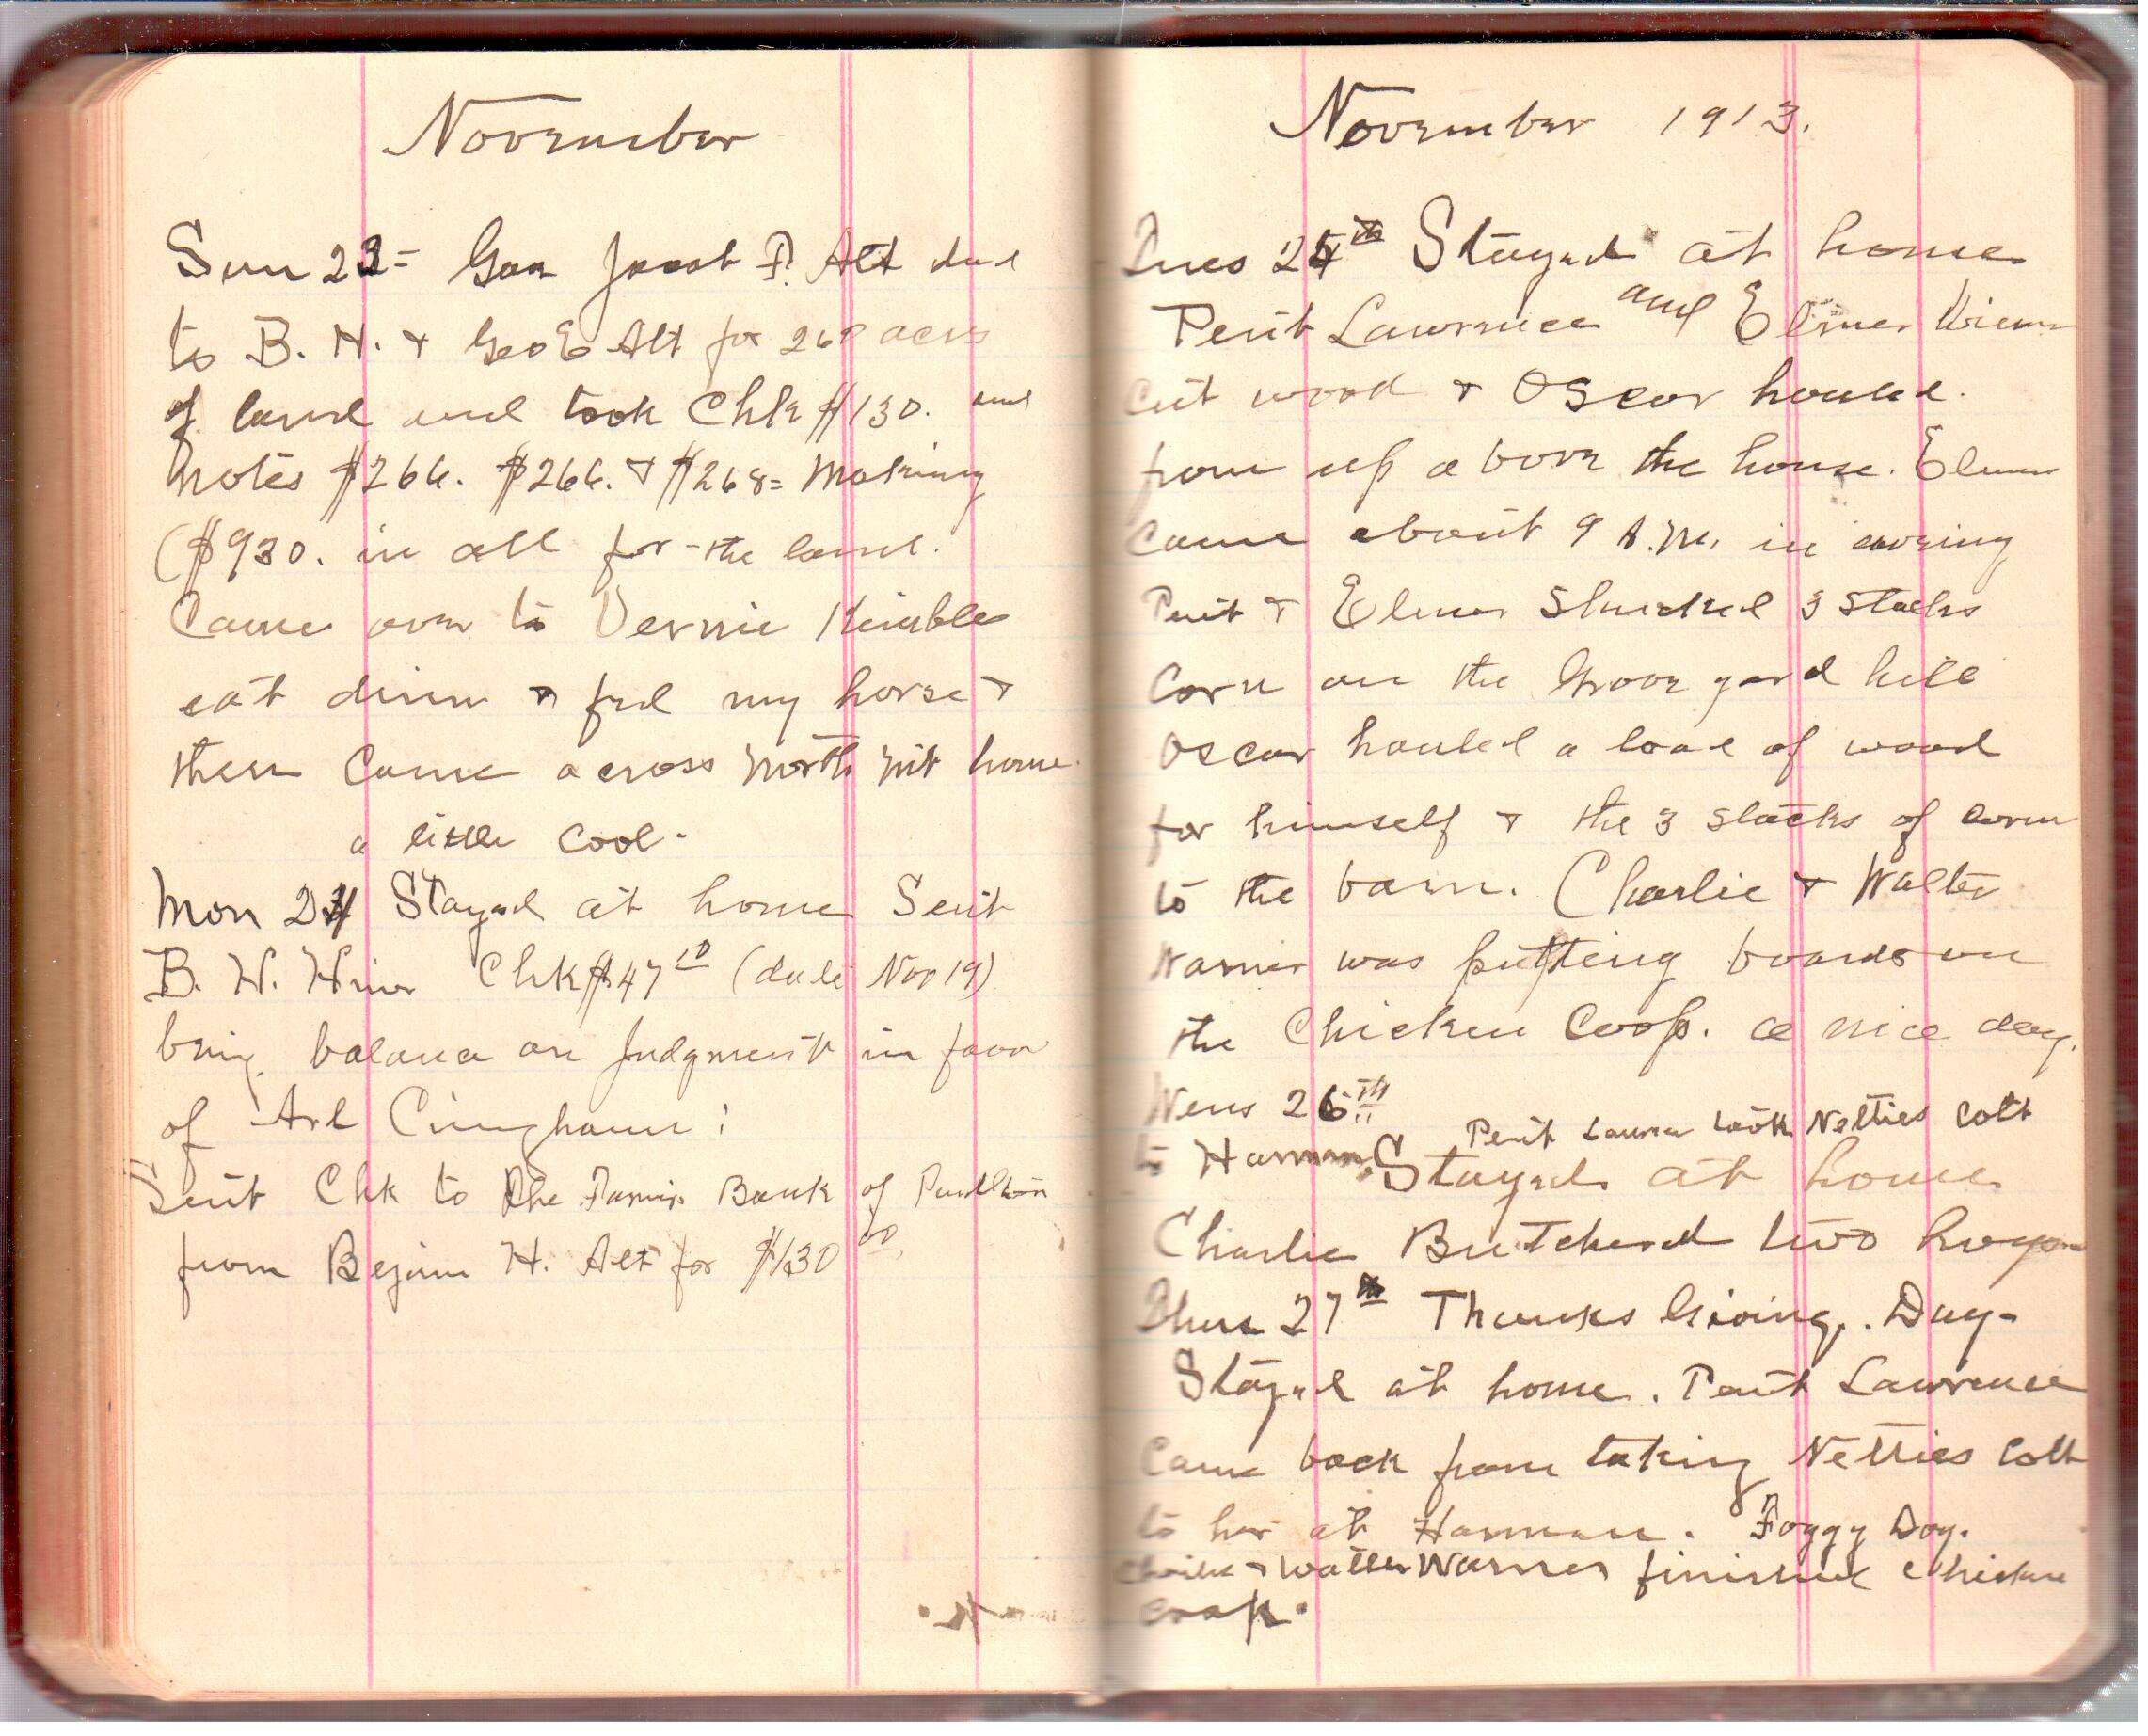 November
Sun 23= Gave Jacob P. Alt deed
to B. H. & Geo E Alt for 260 acres
of land and took Chk $130. and
notes $266. $266. & $268= Making
($930. in all for the land.
Came over to Vernie Kimble
eat dinn & fed my horse &
then Came across North Mt home.
a little cool-
Mon 24 Stayed at home Sent
B. H. Hiner Chk $47 10 (date Nov 19)
being balance on Judgment in favor
of Arl Cuningham
Sent Chk to The Farmrs Bank of Pendleton
from Bejam H. Alt for $130 00
November 1913.
Tues 25th Stayed at home
Perit Lawrence and Elmer
Cut wood & Oscar houled.
from up above the house. Elmer
Came about 9 A.M. in evening
Perit & Elmer Shucked 3 Stacks
Corn on the Grave yard hill
Oscar houled a load of wood
for himself & the 3 stacks of corn
to the barn. Charlie & Walter
Warner was putting boards on
the Chicken Coop. a nice day.
Wens 26th
Perit Lawren took Netties Colt
to Harman. Stayed at home
Charlie Butchered two hogs
Thurs 27th Thanks Giving. Day-
Stayed at home. Perit Lawrence
Came back from taking Netties Colt
to her at Harman. Foggy Day.
Charlie & Walter Warner finished chicken
coop.